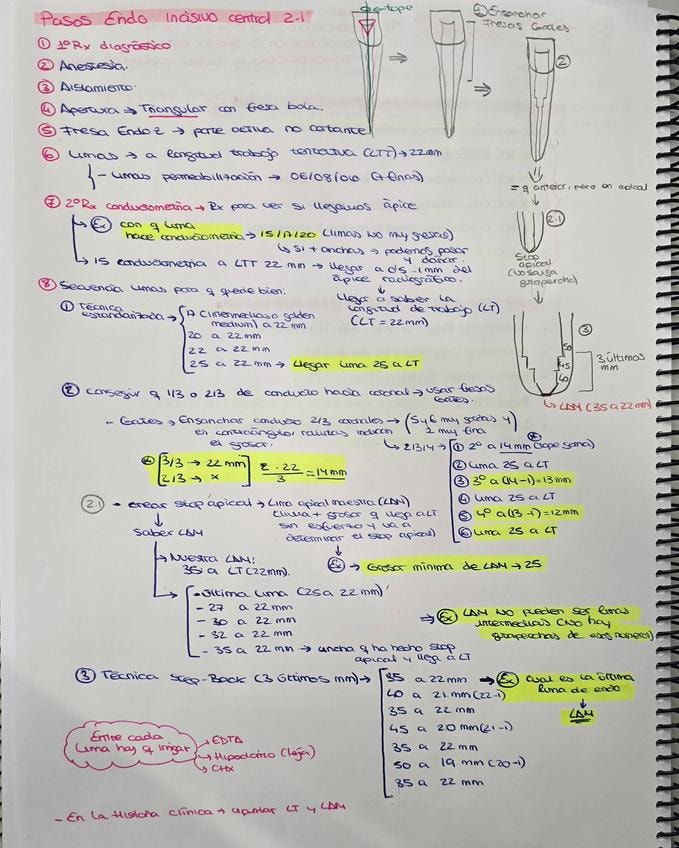 Pasos Endo Incisivo central 2-1
① 1º Rx diagnóstico
② Anestesia.
③ Aislamiento.
④ Apertura → Triangular con fresa bola.
⑤ Fresa Endo Z → parte activa no cortante
⑥ Limas → a longitud trabajo tentativa (LTT) → 22mm
- Limas permeabilización → 06/08/010 (+ finas)
⑦ 2º Rx conductometría → Rx para ver si llegamos ápice
Ex con q lima
hace conductometría → 15/17/20 (limas no muy gruesas)
↳ Si + anchas → podemos pasar
y dañar.
↳ 15 conductometría a LTT 22 mm → llegar a 0'5 - 1mm del
ápice radiográfico.
↓
llegar a saber la
longitud de trabajo (LT)
(LT = 22mm)
⑧ Secuencia limas para q quede bien:
① Técnica
estandarizada →
17 (intermedias o golden
medium) a 22 mm
20 a 22mm
22 a 22mm
25 a 22mm → llegar lima 25 a LT
② Conseguir q 1/3 o 2/3 de conducto hacia coronal → usar fresas
Gates.
- Gates → Ensanchar conducto 2/3 coronales → (5 y 6 muy gordas y
en contraángulo, ranuritas indican 1 muy fina
el grosor. ↳ 2/3/4 →
① 2º a 14mm (tope goma)
② Lima 25 a LT
③ 3º a (14-1) = 13mm
④ Lima 25 a LT
⑤ 4º a (13-1) = 12mm
⑥ Lima 25 a LT
3/3 → 22mm
2/3 → x
2·22
3
= 14mm
2.1 - crear stop apical → Lima apical maestra (LAM)
(lima + grosor q llega a LT
sin esfuerzo y va a
determinar el stop apical)
↓
Saber LAM
→ Nuestra LAM:
35 a LT (22mm).
↓
Ex → Grosor mínimo de LAM → 25
- Última lima (25 a 22mm)
- 27 a 22mm
- 30 a 22mm
- 32 a 22mm
- 35 a 22mm → ancha q ha hecho stop
apical y llega a LT
⇒ Ex LAM NO pueden ser limas
intermedias (No hay
gutaperchas de esos números)
③ Técnica Step-Back (3 últimos mm) →
35 a 22mm → Ex cual es la última
lima de endo
↓
LAM
40 a 21mm (22-1)
35 a 22mm
45 a 20mm (21-1)
35 a 22mm
50 a 19mm (20-1)
35 a 22mm
Entre cada
lima hay q irrigar
→ EDTA
→ Hipoclorito (lejía)
→ CHX
- En la Historia clínica → apuntar LT y LAM
① Ensanchar
Fresas Gates
②
= q anterior, pero en apical
2.1
Stop
apical
(No salga
gutapercha)
③
50
45
40
3 últimos
mm
↳ LAM (35 a 22mm)